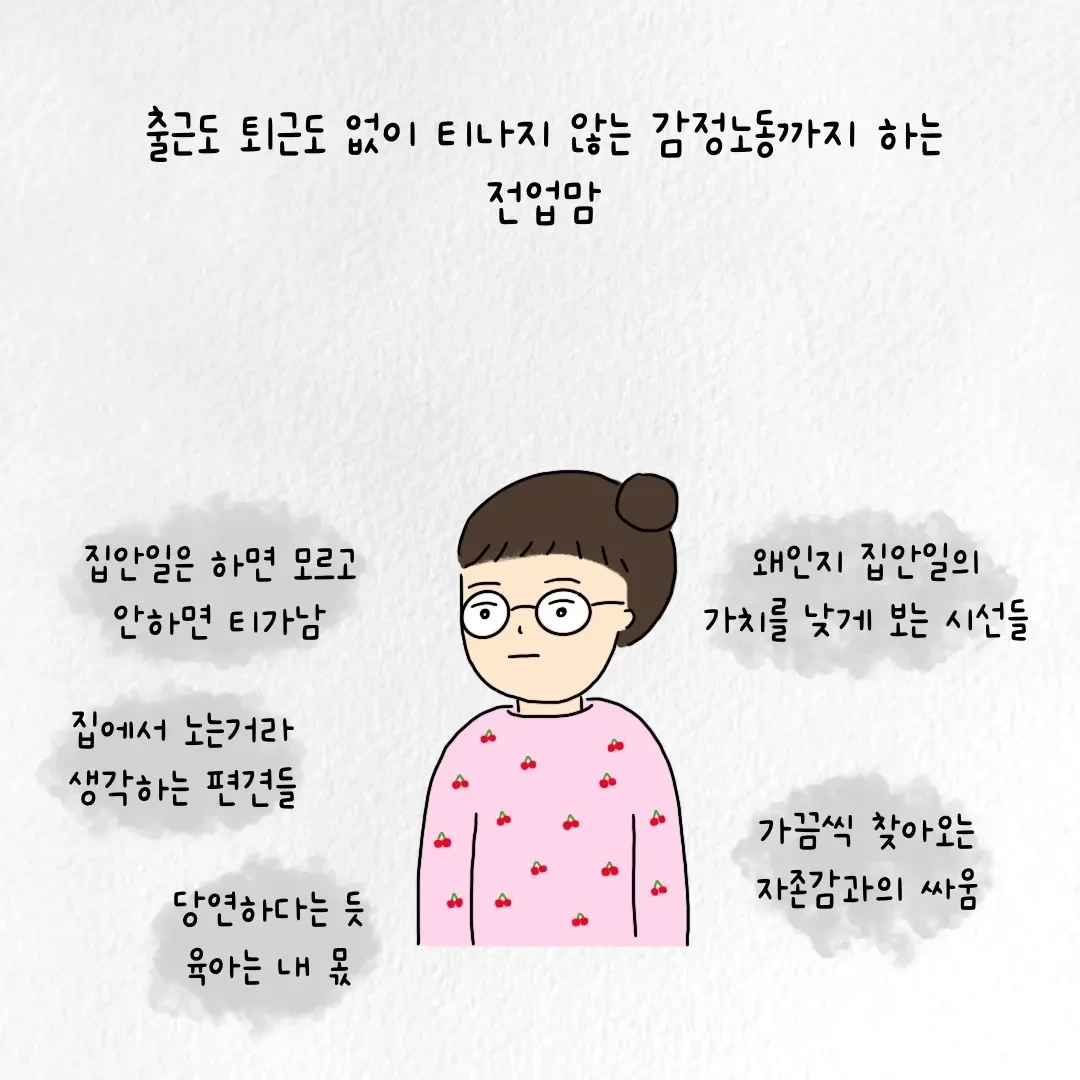 출근도 퇴근도 없이 티나지 않는 감정노동까지 하는
전업맘
집안일은 하면 모르고
안하면 티가남
왜인지 집안일의
가치를 낮게 보는 시선들
집에서 노는거라
생각하는 편견들
가끔씩 찾아오는
자존감과의 싸움
당연하다는 듯
육아는 내 몫